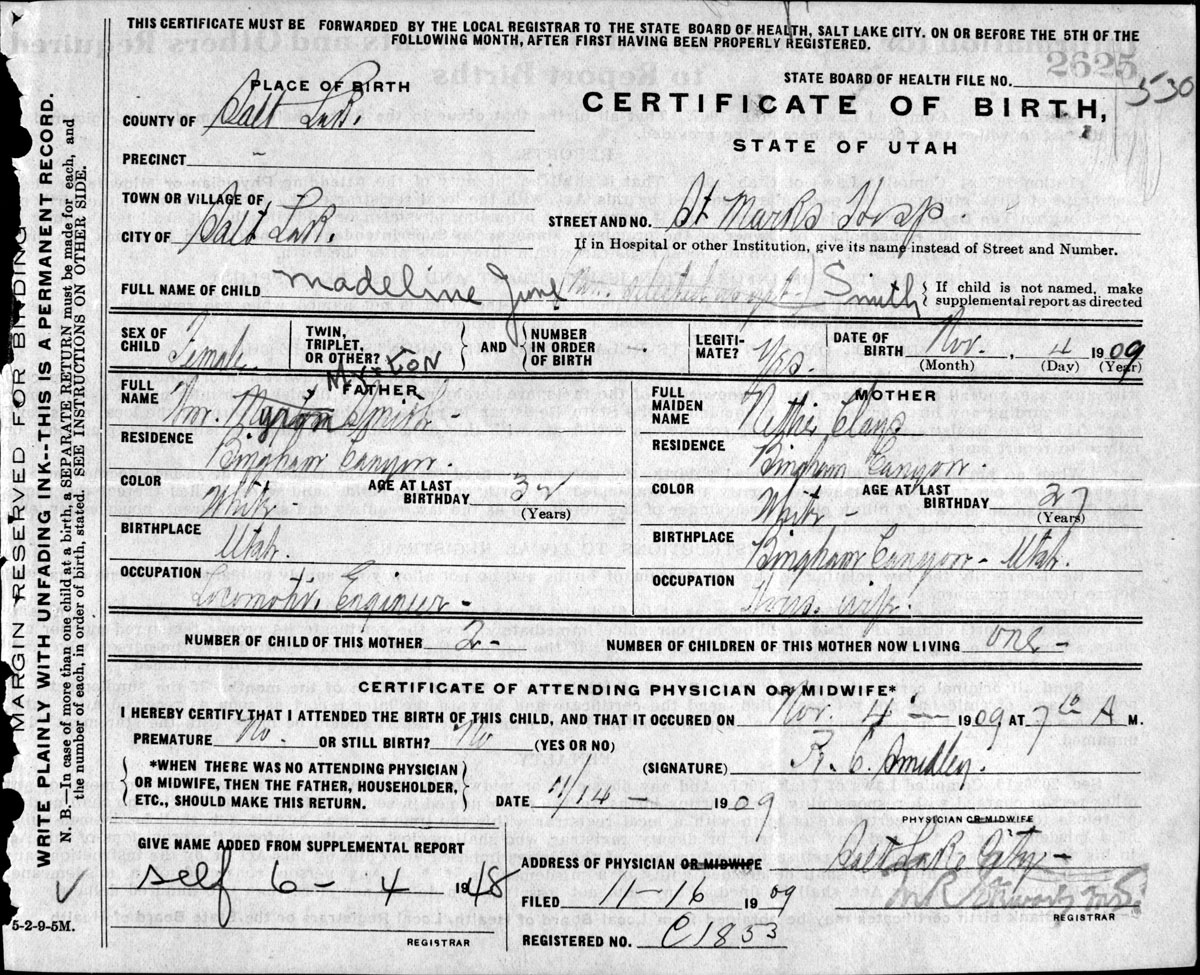 THIS CERTIFICATE MUST BE FORWARDED BY THE LOCAL REGISTRAR TO THE STATE BOARD OF HEALTH, SALT LAKE CITY. ON OR BEFORE THE 5TH OF THE
FOLLOWING MONTH, AFTER FIRST HAVING BEEN PROPERLY REGISTERED.
2625
STATE BOARD OF HEALTH FILE NO. 530
PLACE OF BIRTH
CERTIFICATE OF BIRTH,
STATE OF UTAH
COUNTY OF Salt Lake
PRECINCT –
TOWN OR VILLAGE OF –
CITY OF Salt Lake
STREET AND NO. St Marks Hosp
If in Hospital or other Institution, give its name instead of Street and Number.
FULL NAME OF CHILD Madeline June Smith
If child is not named, make
supplemental report as directed
SEX OF CHILD Female
TWIN, TRIPLET, OR OTHER?
AND
NUMBER IN ORDER OF BIRTH
LEGITIMATE? Yes.
DATE OF BIRTH Nov. , 4 1909
(Month) (Day) (Year)
FATHER
FULL NAME Wm. Smith
RESIDENCE Bingham Canyon.
COLOR White
AGE AT LAST BIRTHDAY
(Years)
BIRTHPLACE Utah.
OCCUPATION Locomotive Engineer
MOTHER
FULL MAIDEN NAME
RESIDENCE Bingham Canyon
COLOR White
AGE AT LAST BIRTHDAY 27
(Years)
BIRTHPLACE Bingham Canyon - Utah.
OCCUPATION House wife.
NUMBER OF CHILD OF THIS MOTHER 2-
NUMBER OF CHILDREN OF THIS MOTHER NOW LIVING one -
CERTIFICATE OF ATTENDING PHYSICIAN OR MIDWIFE*
I HEREBY CERTIFY THAT I ATTENDED THE BIRTH OF THIS CHILD, AND THAT IT OCCURED ON Nov. 4 – 1909 AT A M.
PREMATURE No. OR STILL BIRTH? No (YES OR NO)
*WHEN THERE WAS NO ATTENDING PHYSICIAN
OR MIDWIFE, THEN THE FATHER, HOUSEHOLDER,
ETC., SHOULD MAKE THIS RETURN.
(SIGNATURE) Smedley.
DATE 11/14 – 1909
PHYSICIAN OR MIDWIFE
GIVE NAME ADDED FROM SUPPLEMENTAL REPORT
self 6 - 4 1948
REGISTRAR
ADDRESS OF PHYSICIAN OR MIDWIFE Salt Lake City –
FILED 11-16 1909
REGISTRAR
REGISTERED NO. C1853
5-2-9-5M.
MARGIN RESERVED FOR BINDING
WRITE PLAINLY WITH UNFADING INK--THIS IS A PERMANENT RECORD.
N. B.—In case of more than one child at a birth, a SEPARATE RETURN must be made for each, and
the number of each, in order of birth, stated. SEE INSTRUCTIONS ON OTHER SIDE.